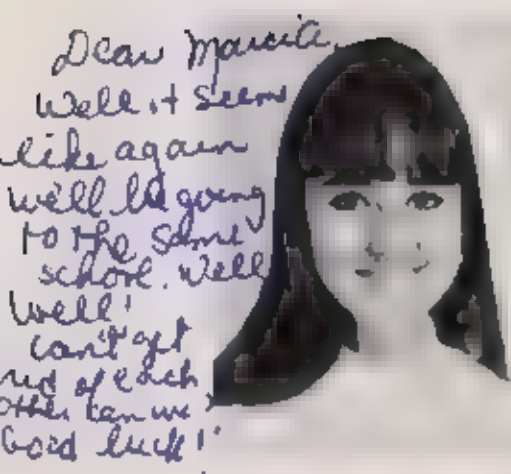 Dear Marcia,
Well it seems
like again
we'll be going
to the same
school. Well
well!
Can't get
rid of each
other can we?
Good luck!